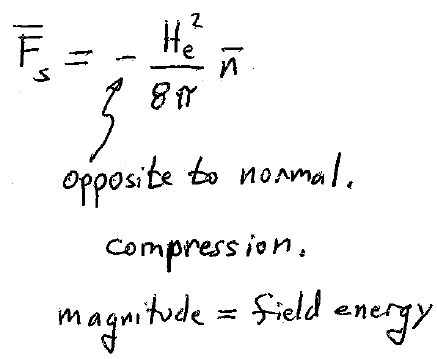 F̅ₛ = - Hₑ²/8π n̅
opposite to normal.
compression.
magnitude = field energy